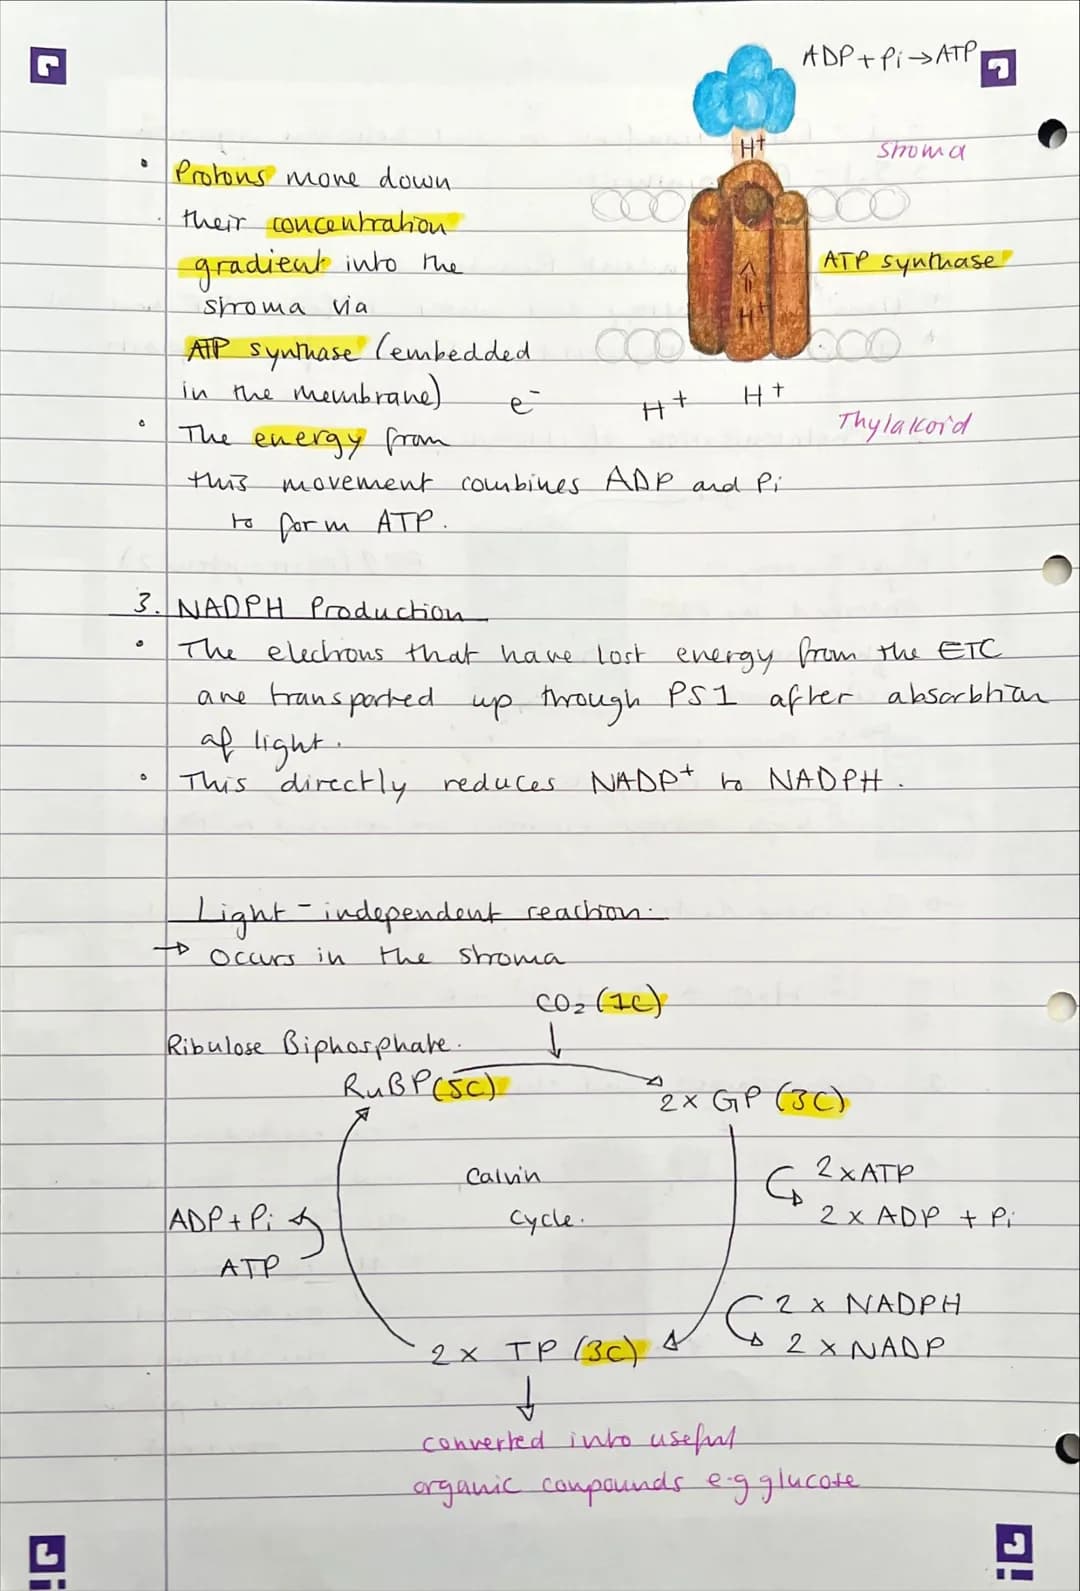 ADP + Pi → ATP
H+
stroma
• Protons move down
their concentration
gradient into the
stroma via
ATP synthase (embedded
in the membrane)
ATP synthase
H+
e-
H+ H+
Thylakoid
• The energy from
this movement combines ADP and Pi
to form ATP.
3. NADPH Production
• The electrons that have lost energy from the ETC
are transported up through PS1 after absorbtion
of light.
• This directly reduces NADP+ to NADPH.
Light-independent reaction.
→ Occurs in the stroma
CO₂ (1C)
Ribulose Biphosphate.
RuBP (5C)
2 x GP (3C)
Calvin
cycle.
2 x ATP
2 x ADP + Pi
ADP + Pi
ATP
2 x NADPH
2 x NADP
2 x TP (3C)
converted into useful
organic compounds e.g glucose